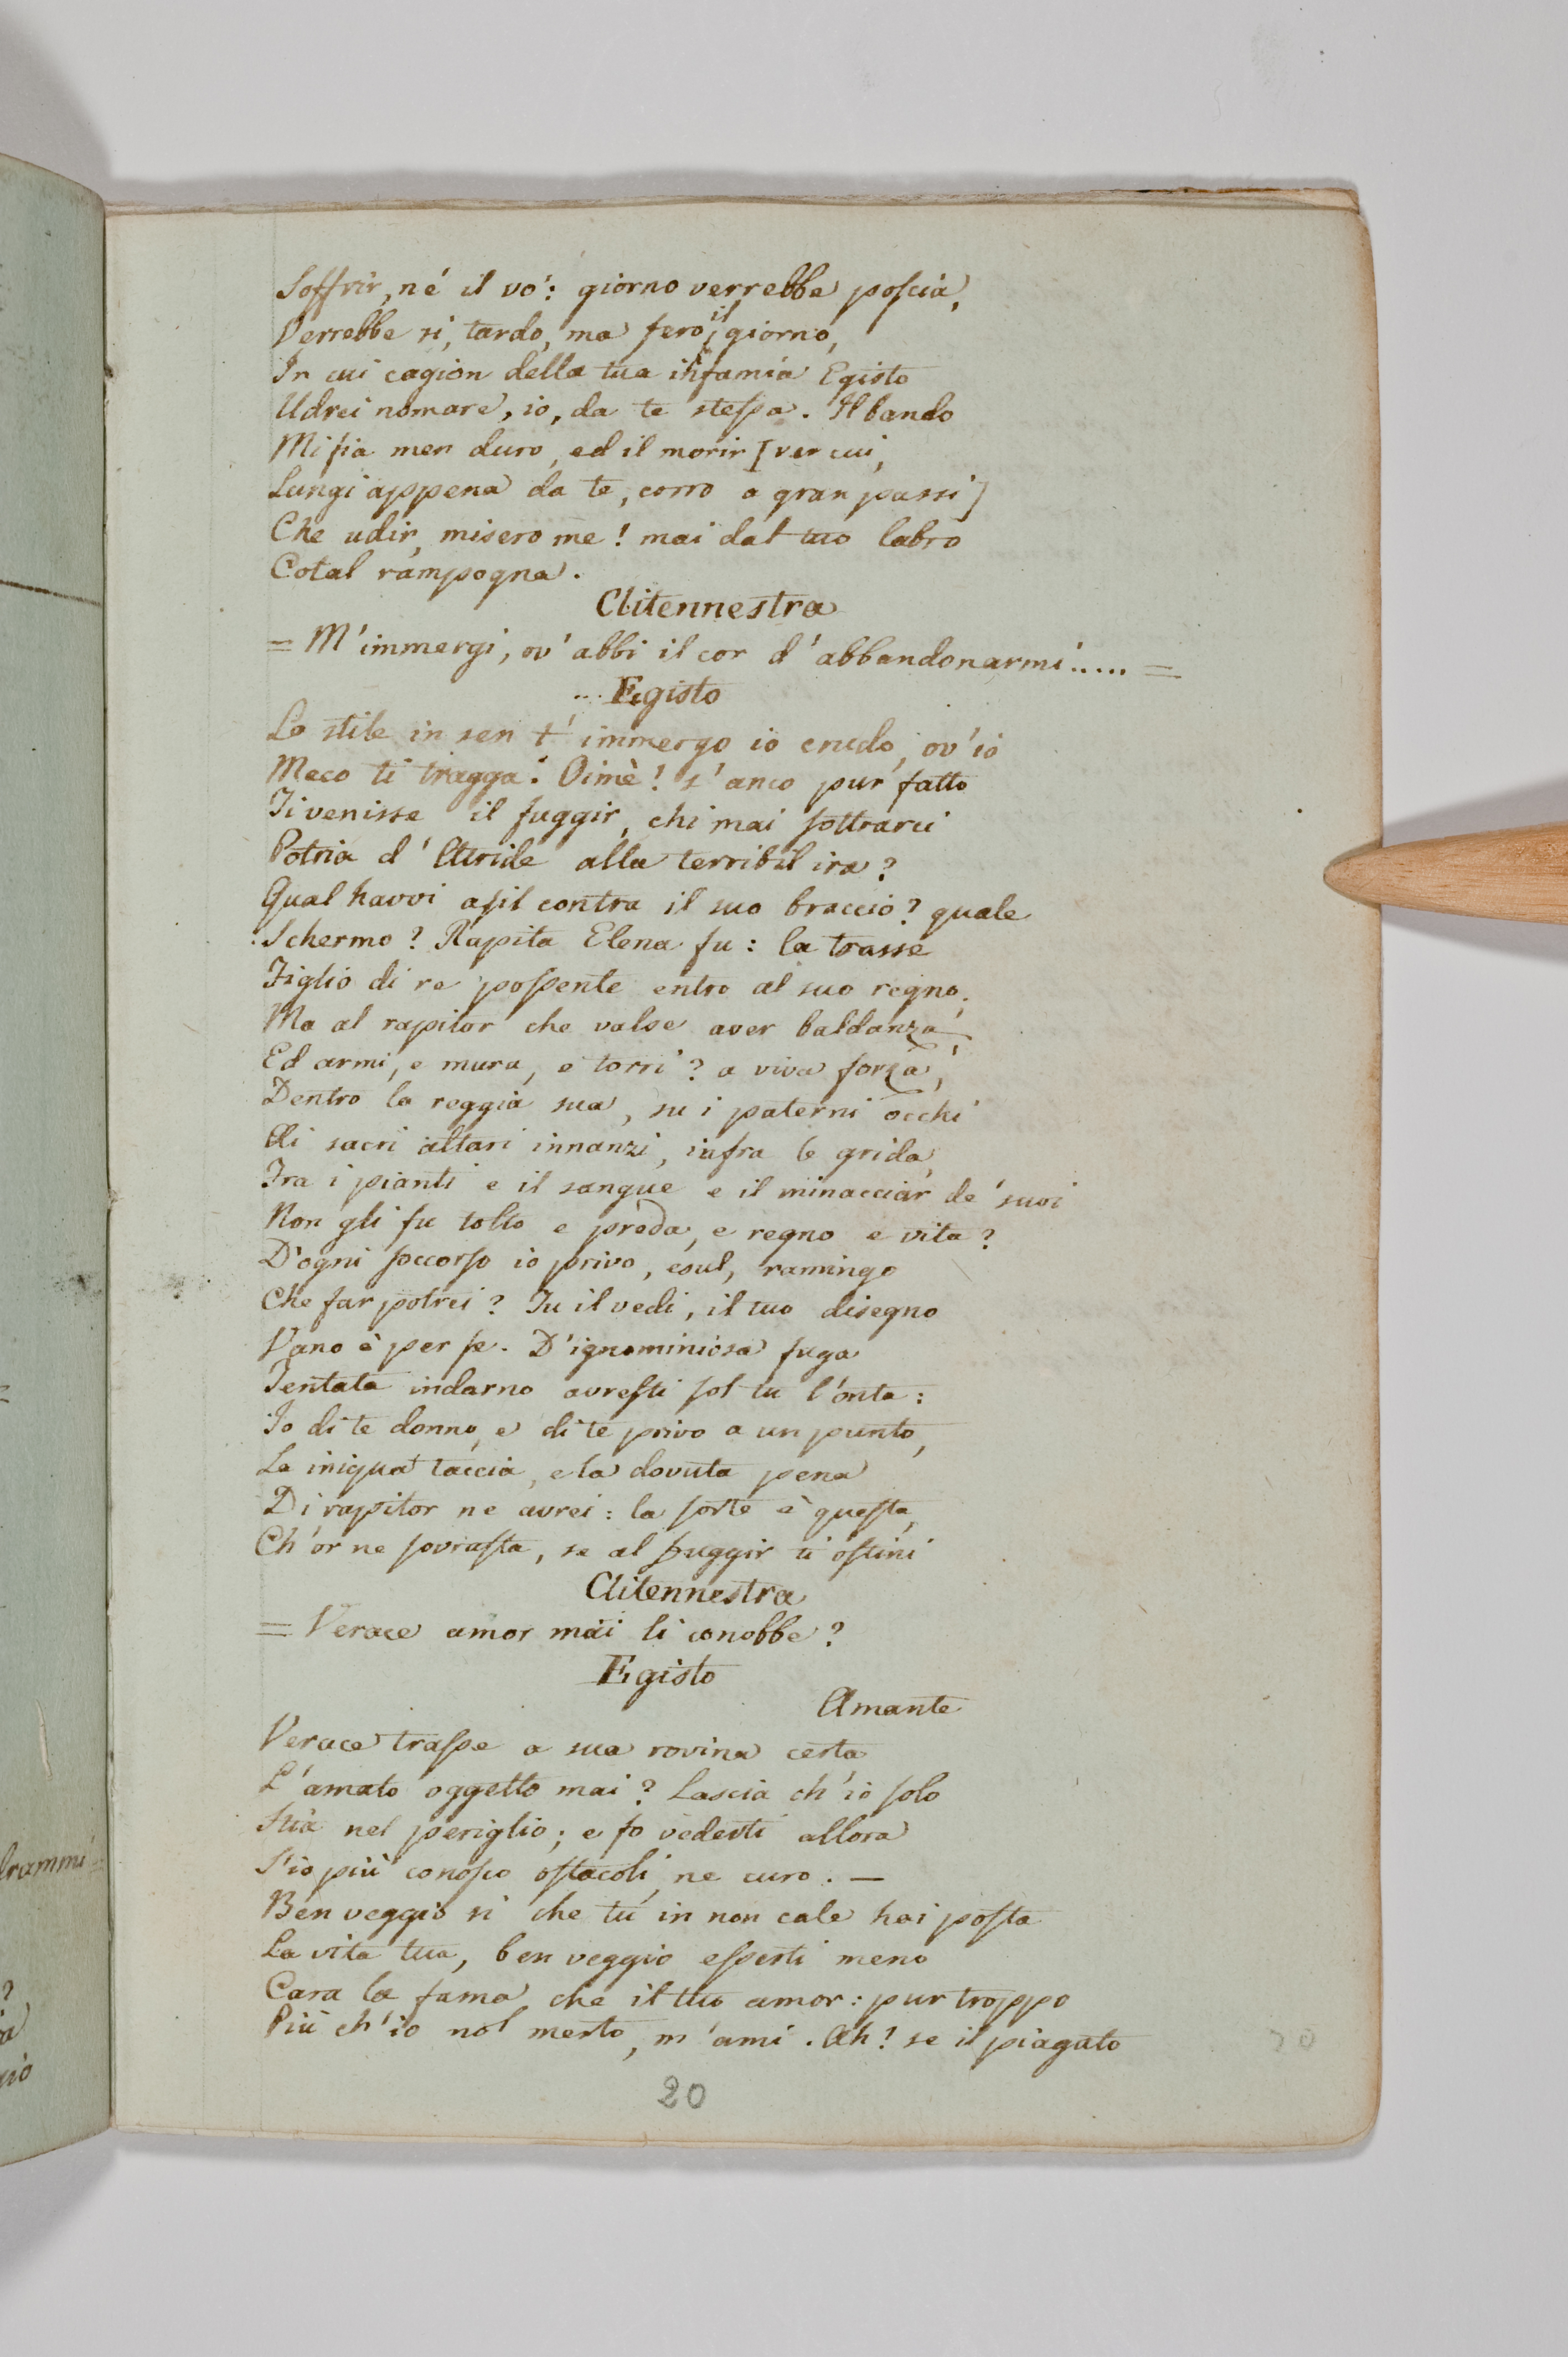 Soffrir, né il vo': giorno verrebbe poscia,
Verrebbe si, tardo, ma fero il giorno,
In cui cagion della tua infamia Egisto
Udrei nomare, io, da te stessa. Il bando
Mi fia men duro, ed il morir [ver cui,
Lungi appena da te, corro a gran passi]
Che udir, misero me! mai dal tuo labro
Cotal rampogna.
Clitennestra
= M'immergi, ov'abbi il cor d'abbandonarmi..... =
... Egisto
Lo stile in sen t'immergo io crudo, ov'io
Meco ti tragga. Oimè! s'anco pur fatto
Ti venisse il fuggir, chi mai sottrarci
Potria d'Atride alla terribil ira?
Qual havvi asil contra il suo braccio? quale
Schermo? Rapita Elena fu: la trasse
Figlio di re possente entro al suo regno;
Ma al rapitor che valse aver baldanza,
Ed armi, e mura, e torri? a viva forza,
Dentro la reggia sua, su i paterni occhi
Ai sacri altari innanzi, infra le grida,
Fra i pianti e il sangue e il minacciar de' suoi
Non gli fu tolto e preda, e regno e vita?
D'ogni soccorso io privo, esul, ramingo
Che far potrei? Tu il vedi, il tuo disegno
Vano è per se. D'ignominiosa fuga
Tentata indarno avresti sol tu l'onta:
Io di te donno, e di te privo a un punto,
La iniqua taccia, e la dovuta pena
Di rapitor ne avrei: la sorte è questa,
Ch'or ne sovrasta, se al fuggir ti ostini
Clitennestra
= Verace amor mai li conobbe?
Egisto
Amante
Verace trasse a sua rovina certa
L'amato oggetto mai? Lascia ch'io solo
Stia nel periglio; e fo vederti allora
S'io più conosco ostacoli, ne curo. —
Ben veggio si che tu in non cale hai posta
La vita tua, ben veggio esserti meno
Cara la fama che il tuo amor: pur troppo
Più ch'io nol merto, m'ami. Ah! se il piagato
20
20